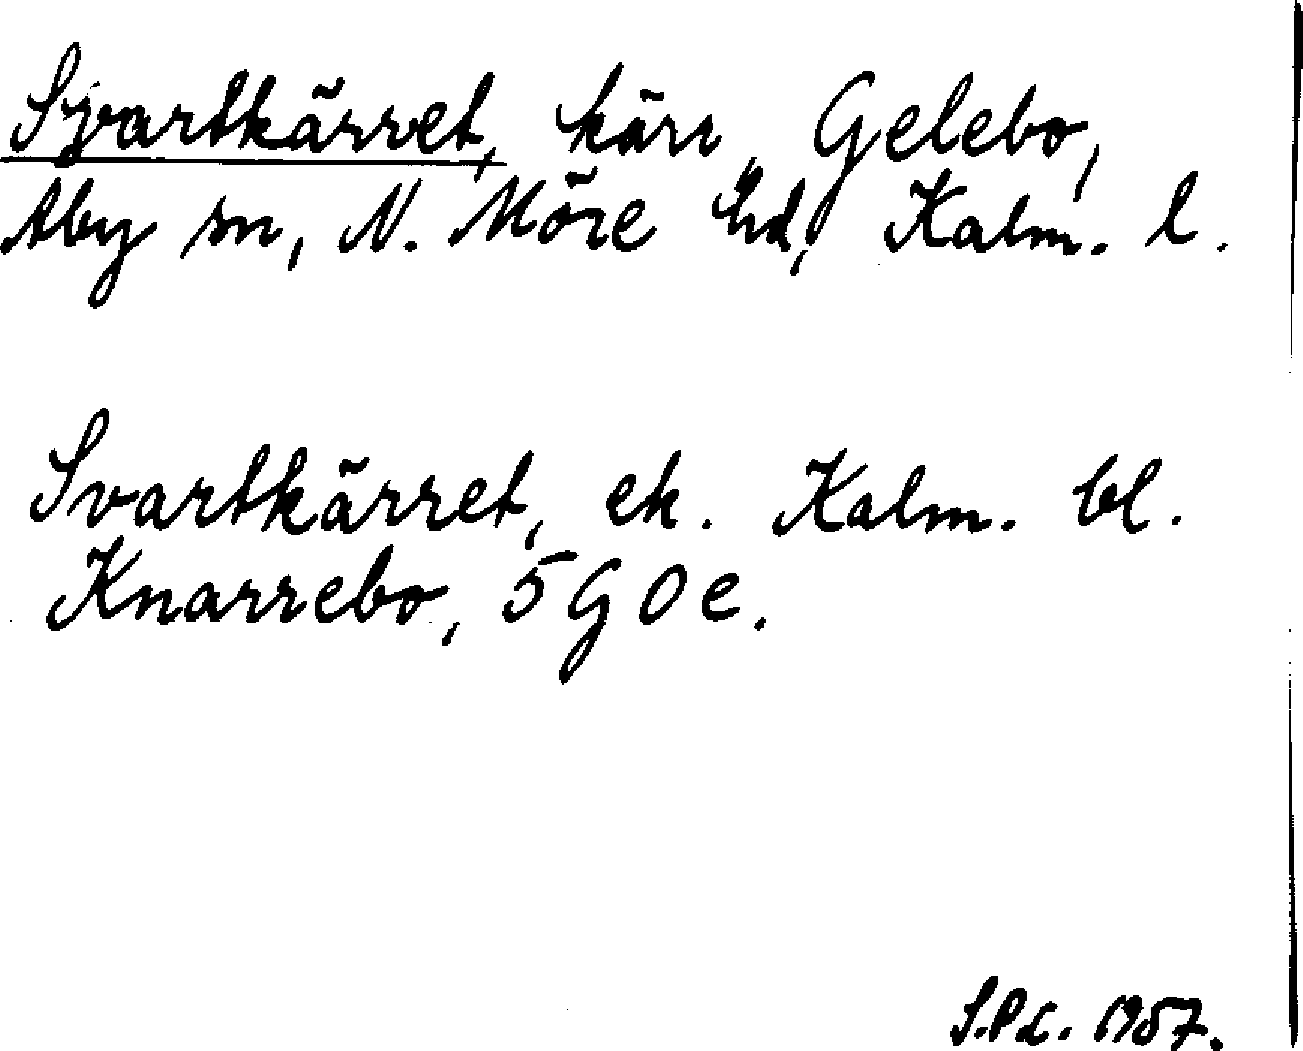 Svartkärret, kärr, Gelebo,
Åby sn, N. Möre hd, Kalm. l.
Svartkärret, ek. Kalm. bl.
Knarrebo, 5 G 0 e.
S.P.L. 1957.